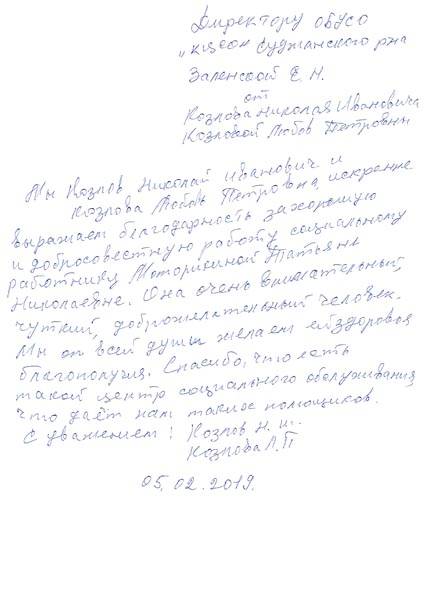 Директору ОБУСО
„КЦСОН Суджанского р-на
Заленской Е. Н.
от
Козлова Николая Ивановича
Козловой Любов Петровны
Мы Козлов Николай Иванович и
Козлова Любовь Петровна, искренне
выражаем благодарность за хорошую
и добросовестную работу социальному
работнику Моторыкиной Татьяне
Николаевне. Она очень внимательный,
чуткий, доброжелательный человек.
Мы от всей души желаем ей здоровья
благополучия. Спасибо, что есть
такой центр социального обслуживания,
что даёт нам таких помощников.
С уважением! Козлов Н. И.
Козлова Л. П
05. 02. 2019.